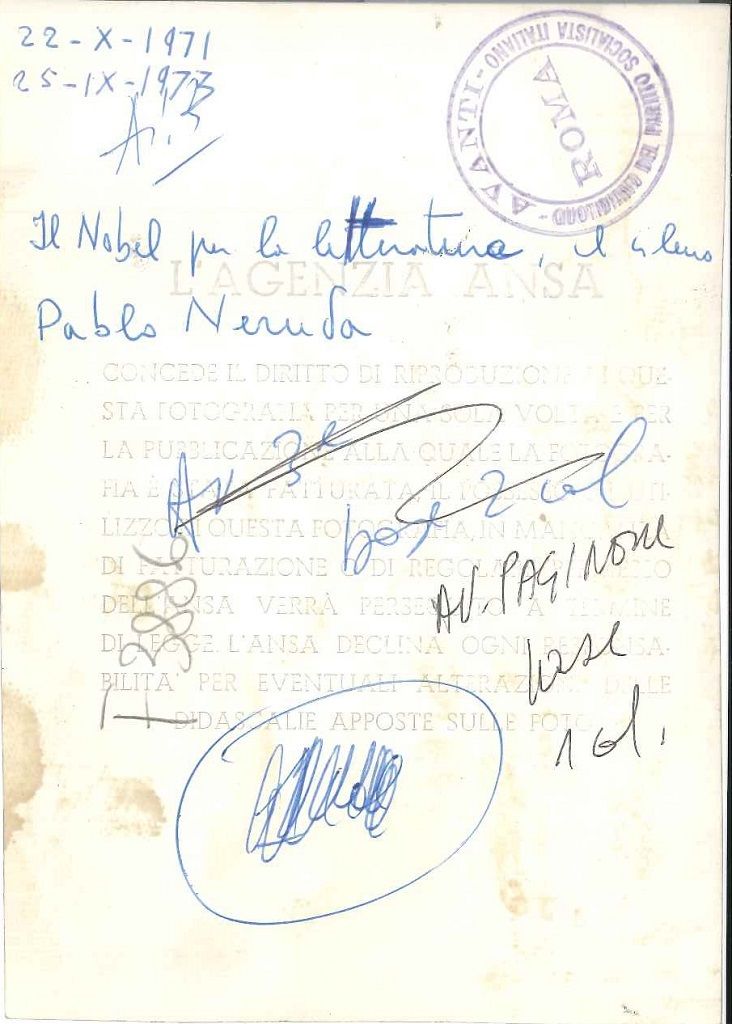 22-X-1971
25-IX-1973
AVANTI - QUOTIDIANO DEL PARTITO SOCIALISTA ITALIANO -
ROMA
Il Nobel per la letteratura, il cileno
Pablo Neruda
L'AGENZIA ANSA
CONCEDE IL DIRITTO DI RIPRODUZIONE DI QUE-
STA FOTOGRAFIA PER UNA SOLA VOLTA E PER
LA PUBBLICAZIONE ALLA QUALE LA FOTOGRA-
FIA È STATA FATTURATA, IL
LIZZO DI QUESTA FOTOGRAFIA, IN
DI FATTURAZIONE O DI
DELL'ANSA VERRÀ PERSEGUITO A TERMINE
DI LEGGE. L'ANSA DECLINA OGNI RESPONSA-
BILITA' PER EVENTUALI ALTERAZIONI DELLE
DIDASCALIE APPOSTE SULLE FOTO
Av 3ª
base 2 col
AV. PAGINONE
base
1 col.